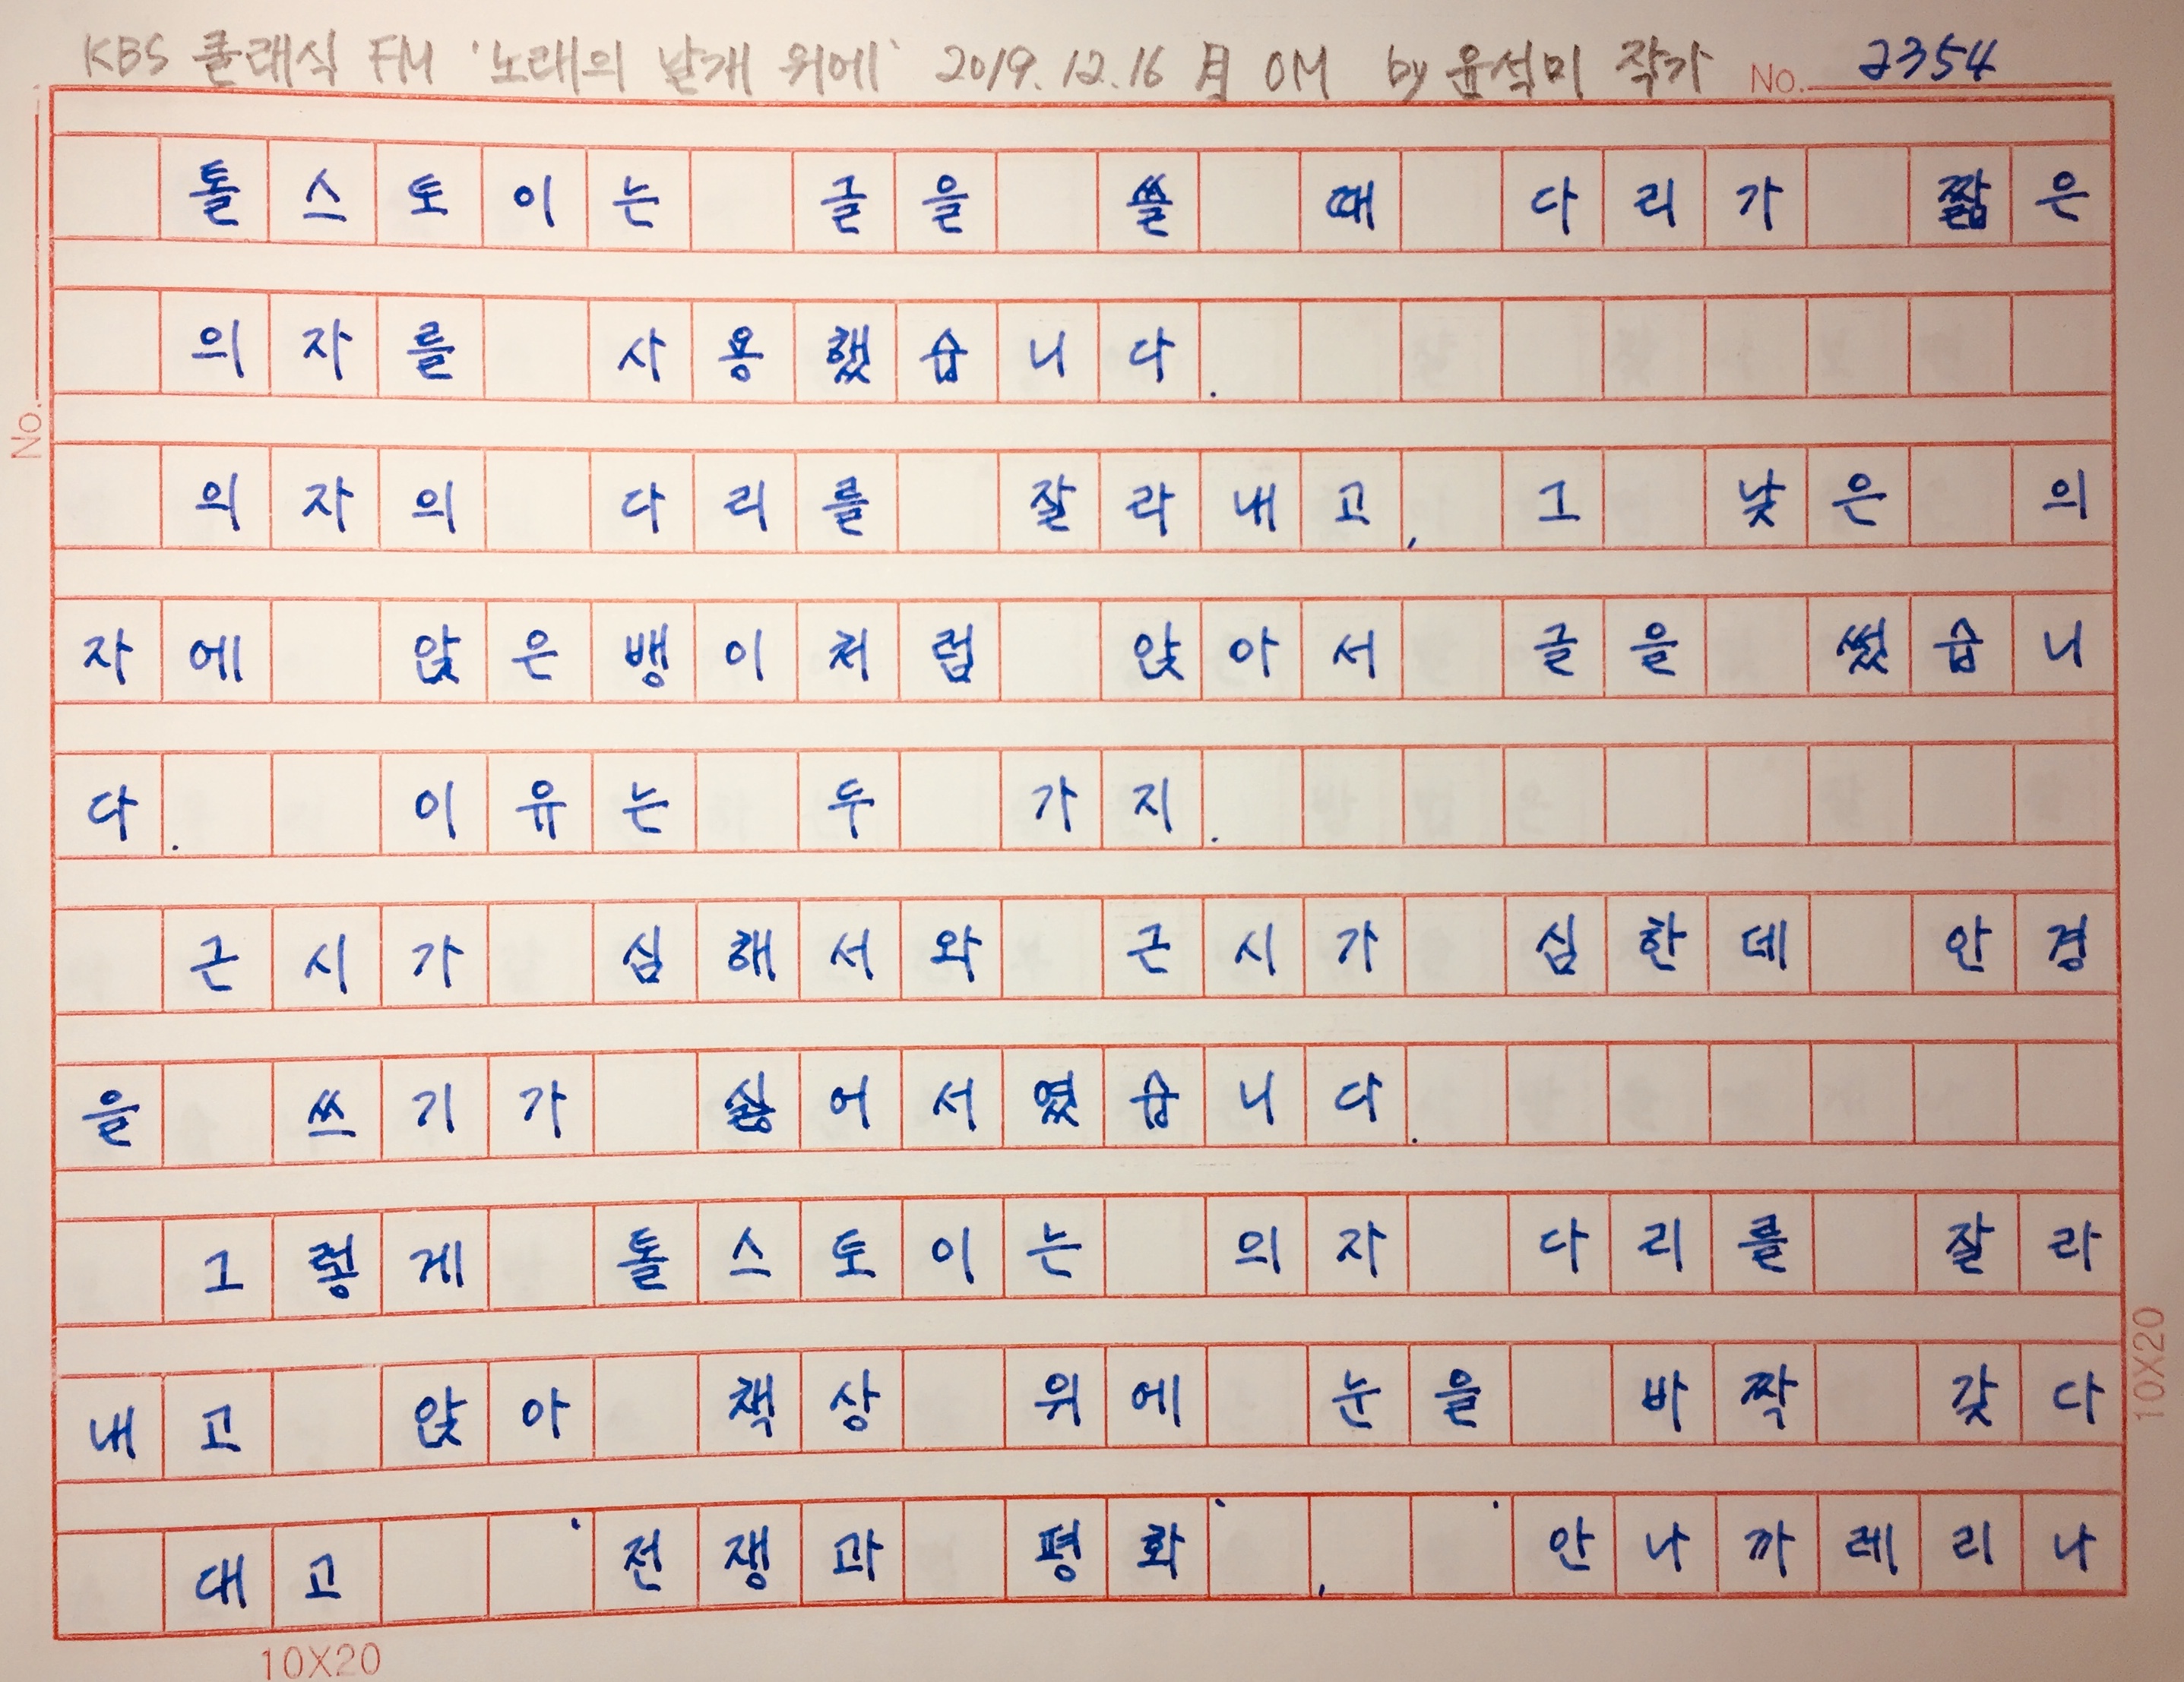 KBS 클래식 FM '노래의 날개 위에' 2019.12.16 月 OM by 윤석미 작가 No. 2354
톨스토이는 글을 쓸 때 다리가 짧은
의자를 사용했습니다.
의자의 다리를 잘라내고, 그 낮은 의
자에 앉은뱅이처럼 앉아서 글을 썼습니
다. 이유는 두 가지.
근시가 심해서와 근시가 심한데 안경
을 쓰기가 싫어서였습니다.
그렇게 톨스토이는 의자 다리를 잘라
내고 앉아 책상 위에 눈을 바짝 갖다
대고 '전쟁과 평화', '안나까레리나
No.
10X20
10X20